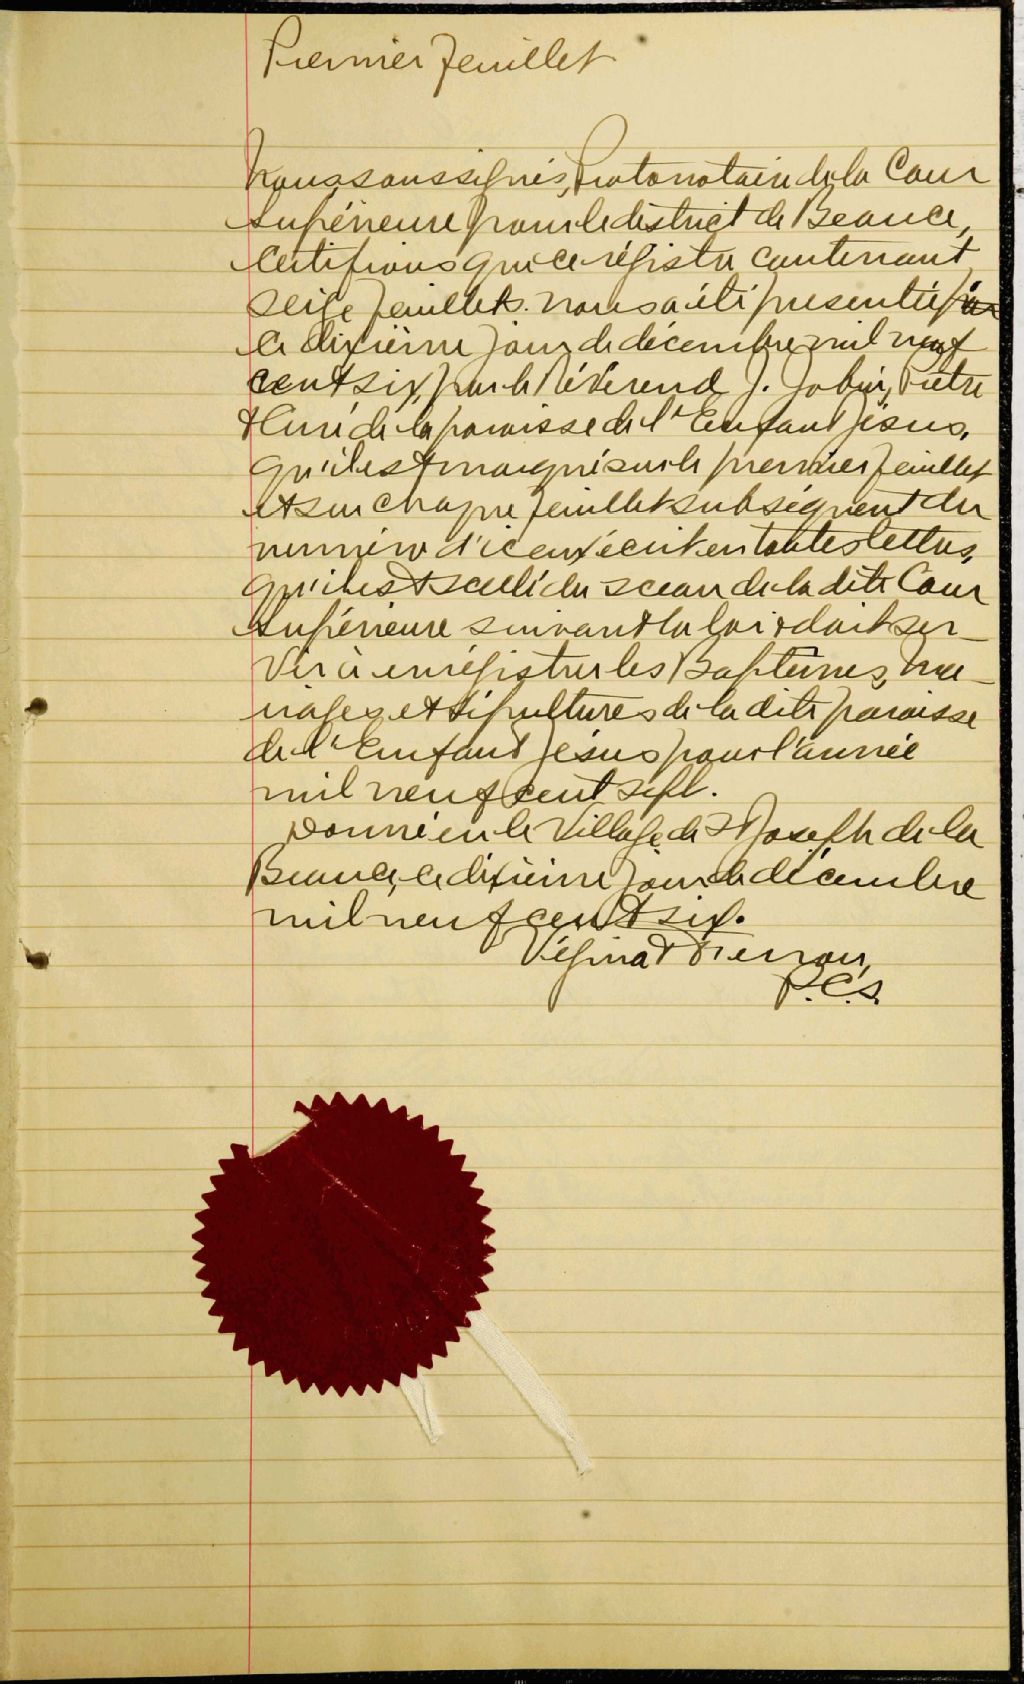 Premier feuillet
Nous soussignés, Protonotaire de la Cour
Supérieure pour le district de Beauce,
Certifions que ce régistre contenant
seize feuillets nous a été presenté par
ce dixième jour de décembre mil neuf
cent six, par le Révérend J. Jobin, Prêtre
& Curé de la paroisse de l'Enfant Jésus,
qu'il est marqué sur le premier feuillet
et sur chaque feuillet subséquent du
numéro d'iceux écrit en toutes lettres,
qu'il est scellé du sceau de la dite Cour
Supérieure suivant la loi & doit ser-
vir à enrégistrer les Baptêmes, Ma-
riages et Sépultures de la dite paroisse
de l'Enfant Jésus pour l'année
mil neuf cent sept.
Donné en le Village de St Joseph de la
Beauce, ce dixième jour de décembre
mil neuf cent six.
Vézina &
P.C.S.